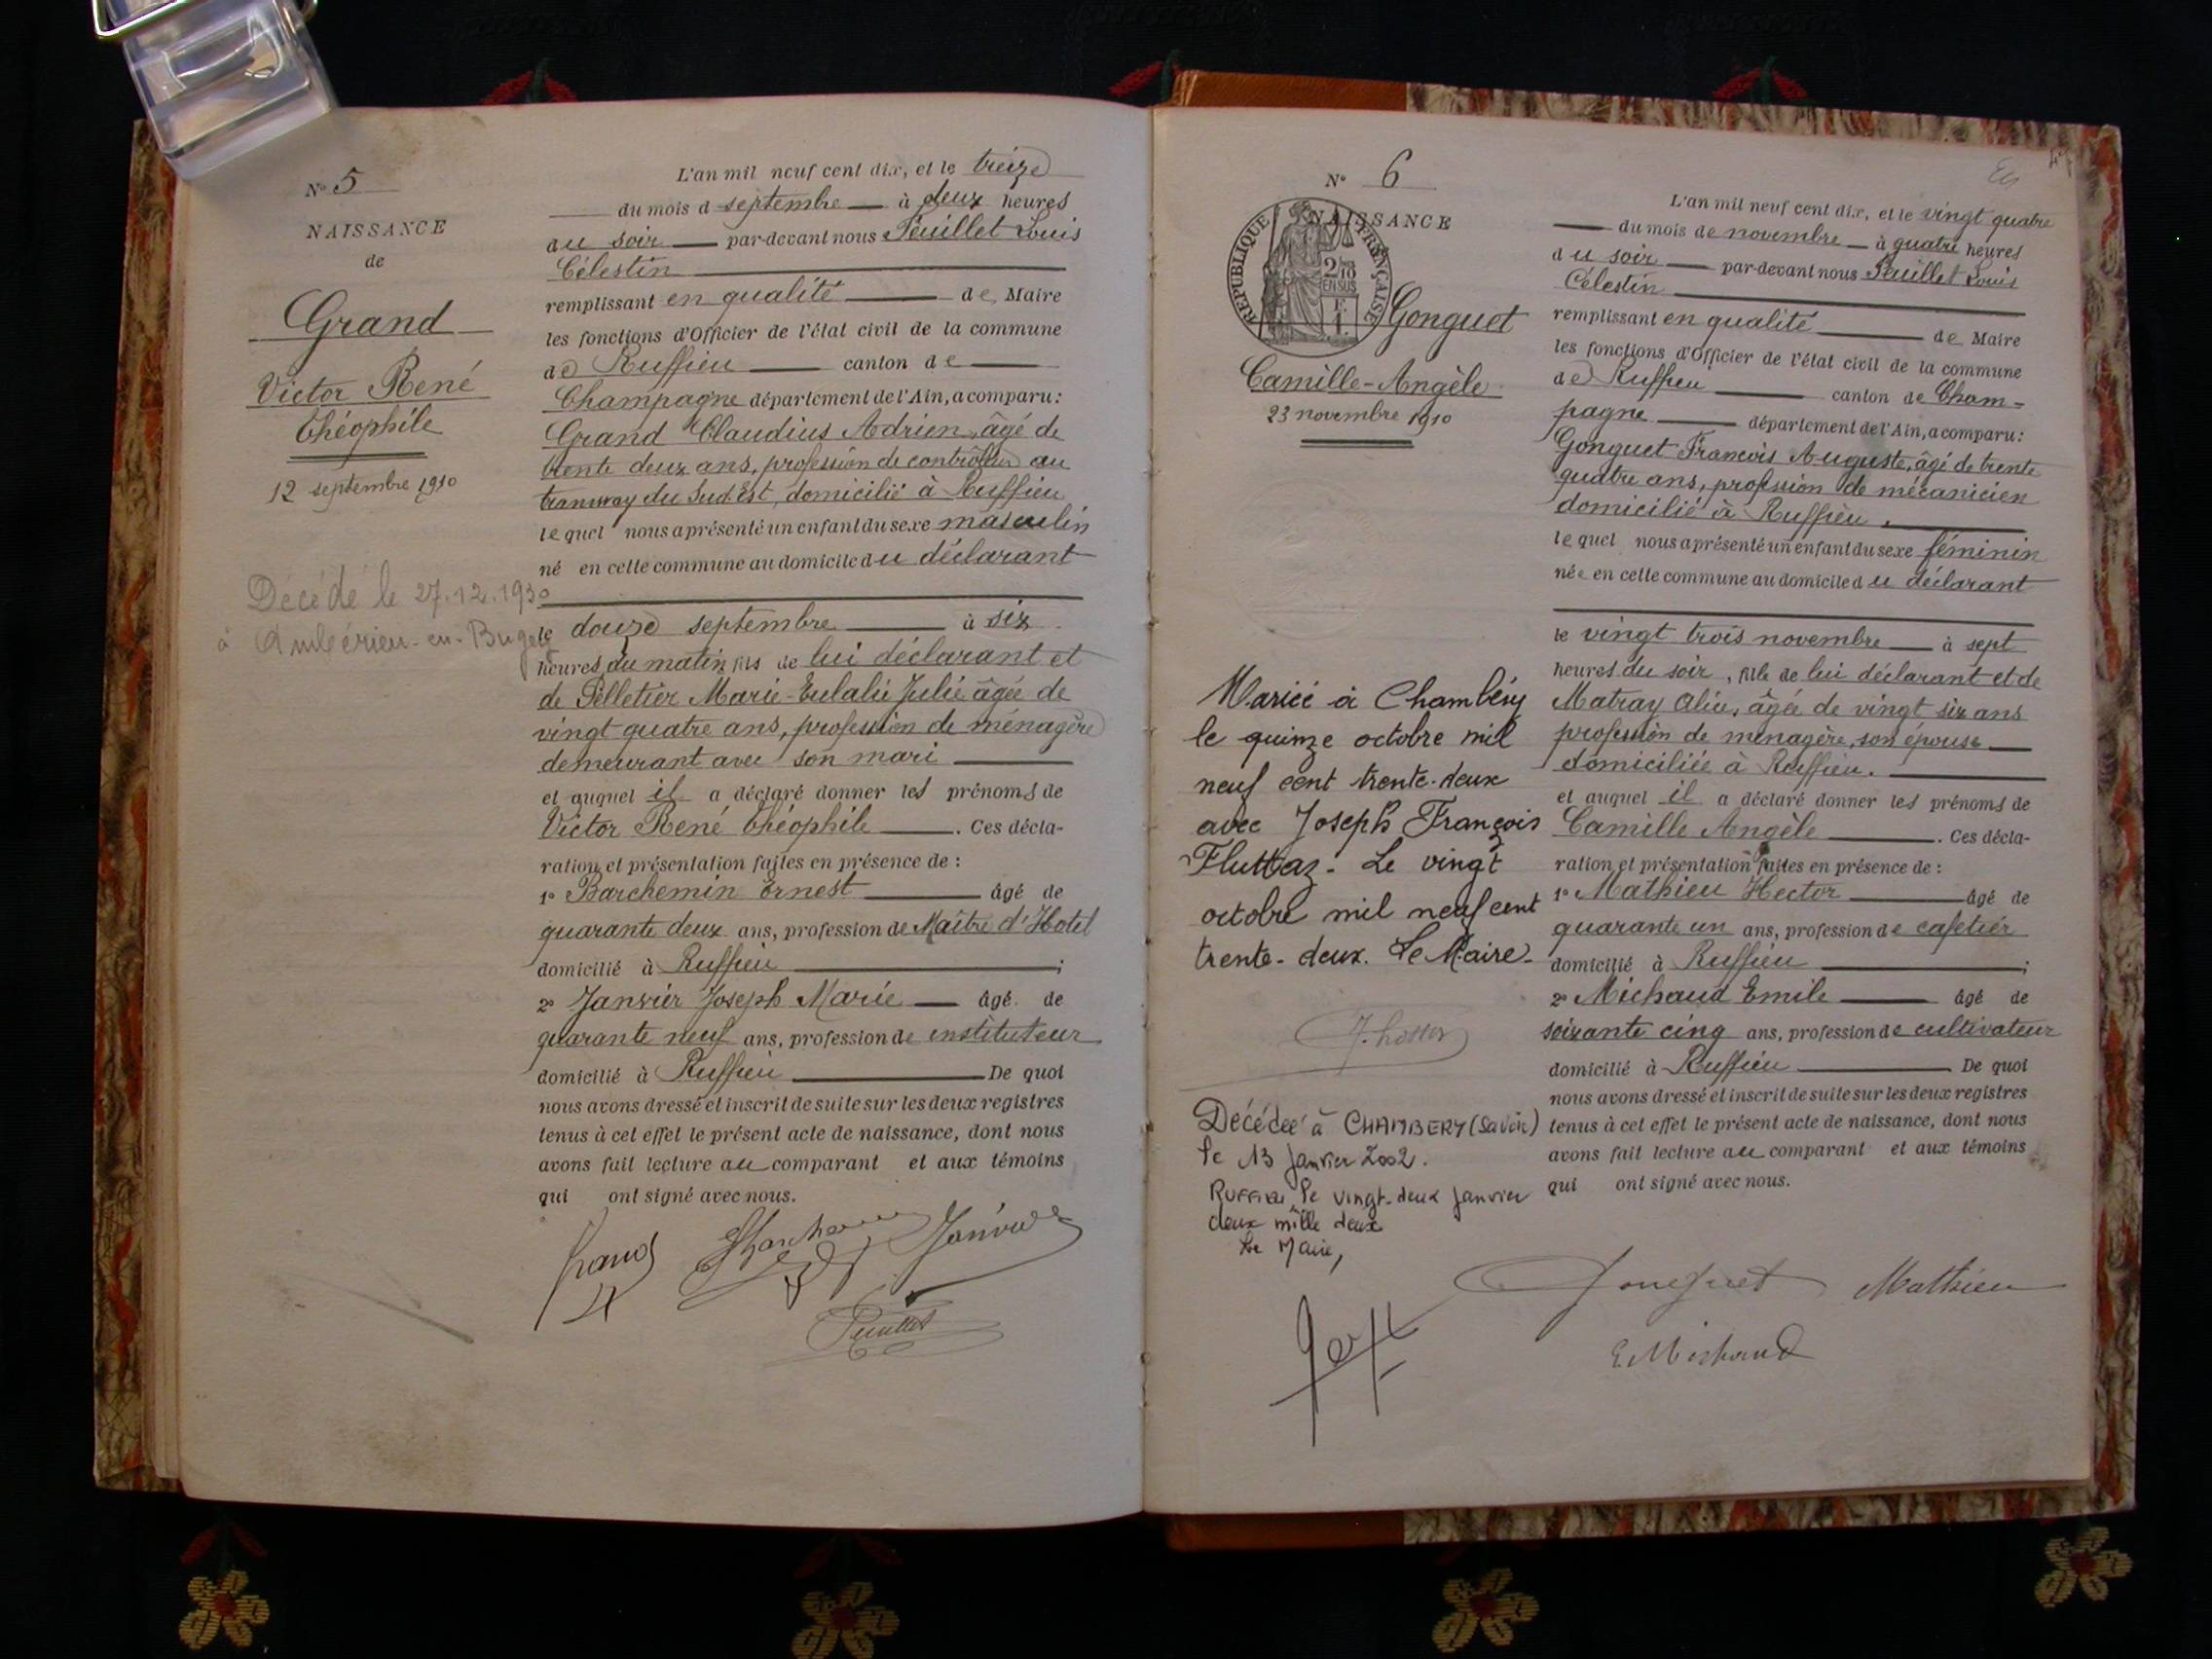 N° 5
NAISSANCE
de
Grand
Victor René
Théophile
12 septembre 1910
Décédé le 27.12.1930
à Ambérieu-en-Bugey
L'an mil neuf cent dix, et le treize
du mois d septembre à deux heures
du soir par-devant nous Peuillet Louis
Célestin
remplissant en qualité de Maire
les fonctions d'Officier de l'état civil de la commune
de Ruffieu canton de
Champagne département de l'Ain, a comparu :
Grand Claudius Adrien, âgé de
trente deux ans, profession de contrôleur au
tramway du Sud-Est, domicilié à Ruffieu
lequel nous a présenté un enfant du sexe masculin
né en cette commune au domicile du déclarant
le douze septembre à six
heures du matin fils de lui déclarant et
de Pelletier Marie-Eulalie Julie âgée de
vingt quatre ans, profession de ménagère
demeurant avec son mari
et auquel il a déclaré donner les prénoms de
Victor René Théophile. Ces décla-
ration et présentation faites en présence de :
1° Barchemin Ernest âgé de
quarante deux ans, profession de Maître d'Hotel
domicilié à Ruffieu ;
2° Janvier Joseph Marie âgé de
quarante neuf ans, profession de instituteur
domicilié à Ruffieu De quoi
nous avons dressé et inscrit de suite sur les deux registres
tenus à cet effet le présent acte de naissance, dont nous
avons fait lecture au comparant et aux témoins
qui ont signé avec nous.
Grand Janvier
Peuillet
N° 6
NAISSANCE
REPUBLIQUE FRANÇAISE
2/10
EN SUS
F.
1.
Gonguet
Camille-Angèle
23 novembre 1910
Mariée à Chambéry
le quinze octobre mil
neuf cent trente-deux
avec Joseph François
Fluttaz - Le vingt
octobre mil neuf cent
trente-deux. Le Maire-
Décédée à CHAMBERY (Savoie)
le 13 janvier 2002.
RUFFIEU le vingt-deux janvier
deux mille deux
Le Maire,
L'an mil neuf cent dix, et le vingt quatre
du mois de novembre à quatre heures
du soir par-devant nous Peuillet Louis
Célestin
remplissant en qualité de Maire
les fonctions d'Officier de l'état civil de la commune
de Ruffieu canton de Cham-
pagne département de l'Ain, a comparu :
Gonguet Francois Auguste, âgé de trente
quatre ans, profession de mécanicien
domicilié à Ruffieu.
lequel nous a présenté un enfant du sexe féminin
née en cette commune au domicile du déclarant
le vingt trois novembre à sept
heures du soir, fille de lui déclarant et de
Matray Alice, âgée de vingt six ans
profession de ménagère, son épouse
domiciliée à Ruffieu.
et auquel il a déclaré donner les prénoms de
Camille Angèle. Ces décla-
ration et présentation faites en présence de :
1° Mathieu Hector âgé de
quarante un ans, profession de cafetier
domicilié à Ruffieu ;
2° Michaud Emile âgé de
soixante cinq ans, profession de cultivateur
domicilié à Ruffieu De quoi
nous avons dressé et inscrit de suite sur les deux registres
tenus à cet effet le présent acte de naissance, dont nous
avons fait lecture au comparant et aux témoins
qui ont signé avec nous.
Gonguet Mathieu
E Michaud